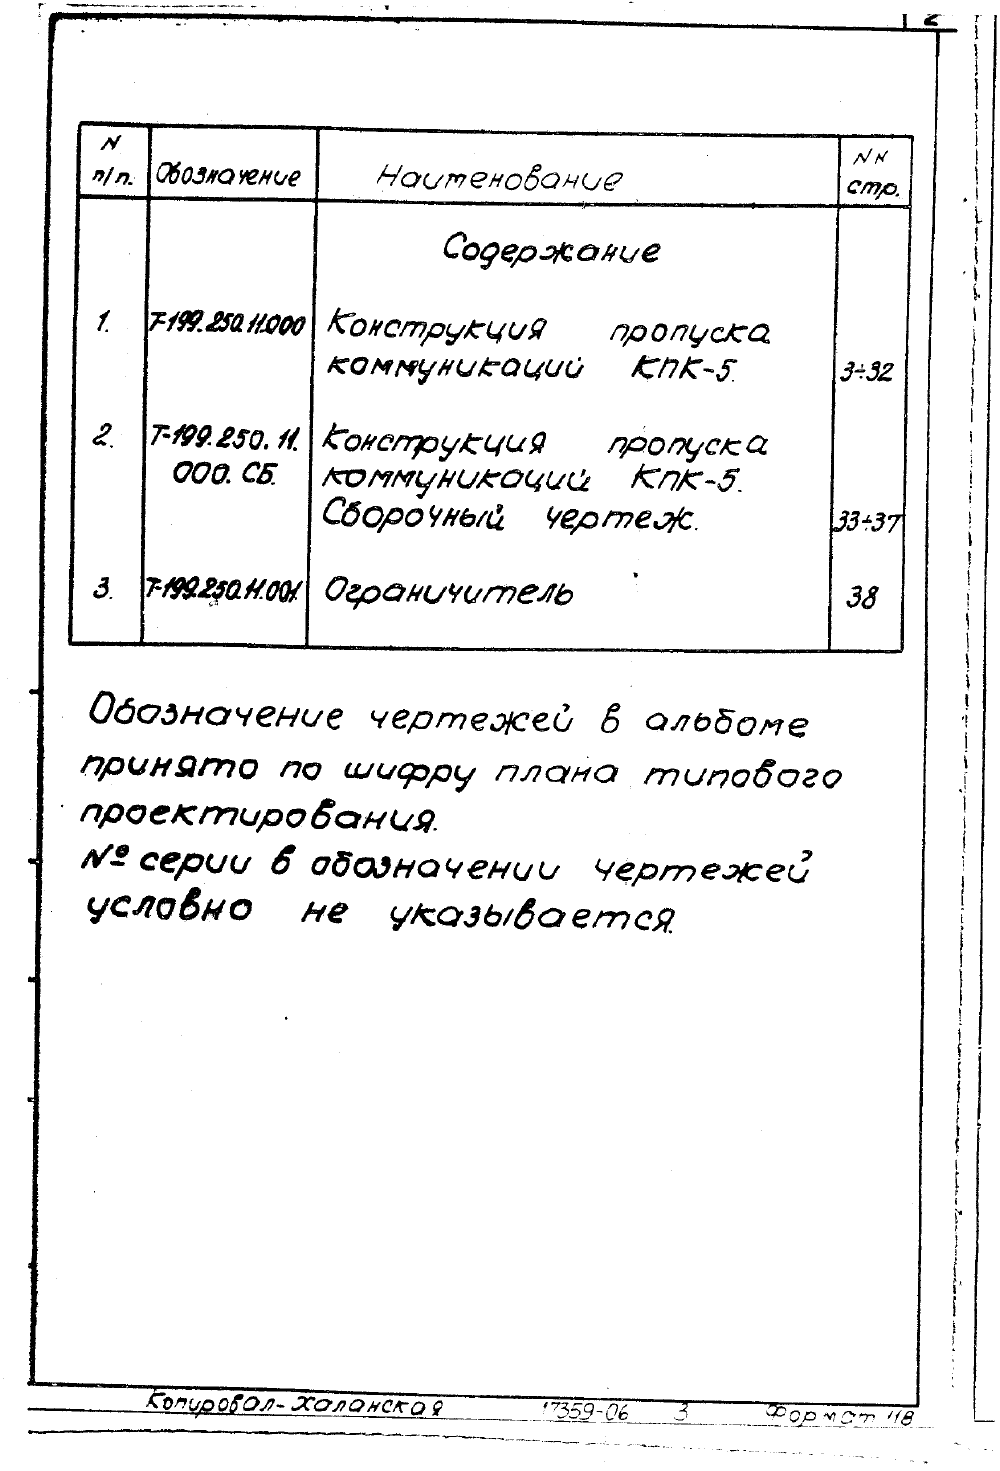 2
N п/п.
Обозначение
Наименование
NN стр.
Содержание
1. Т-199.250.11.000 Конструкция пропуска
коммуникаций КПК-5. 3÷32
2. Т-199.250.11. Конструкция пропуска
000.СБ. коммуникаций КПК-5.
Сборочный чертеж. 33÷37
3. Т-199.250.11.001. Ограничитель 38
Обозначение чертежей в альбоме
принято по шифру плана типового
проектирования.
№ серии в обозначении чертежей
условно не указывается.
Копировал-Халанская 17359-06 3 Формат